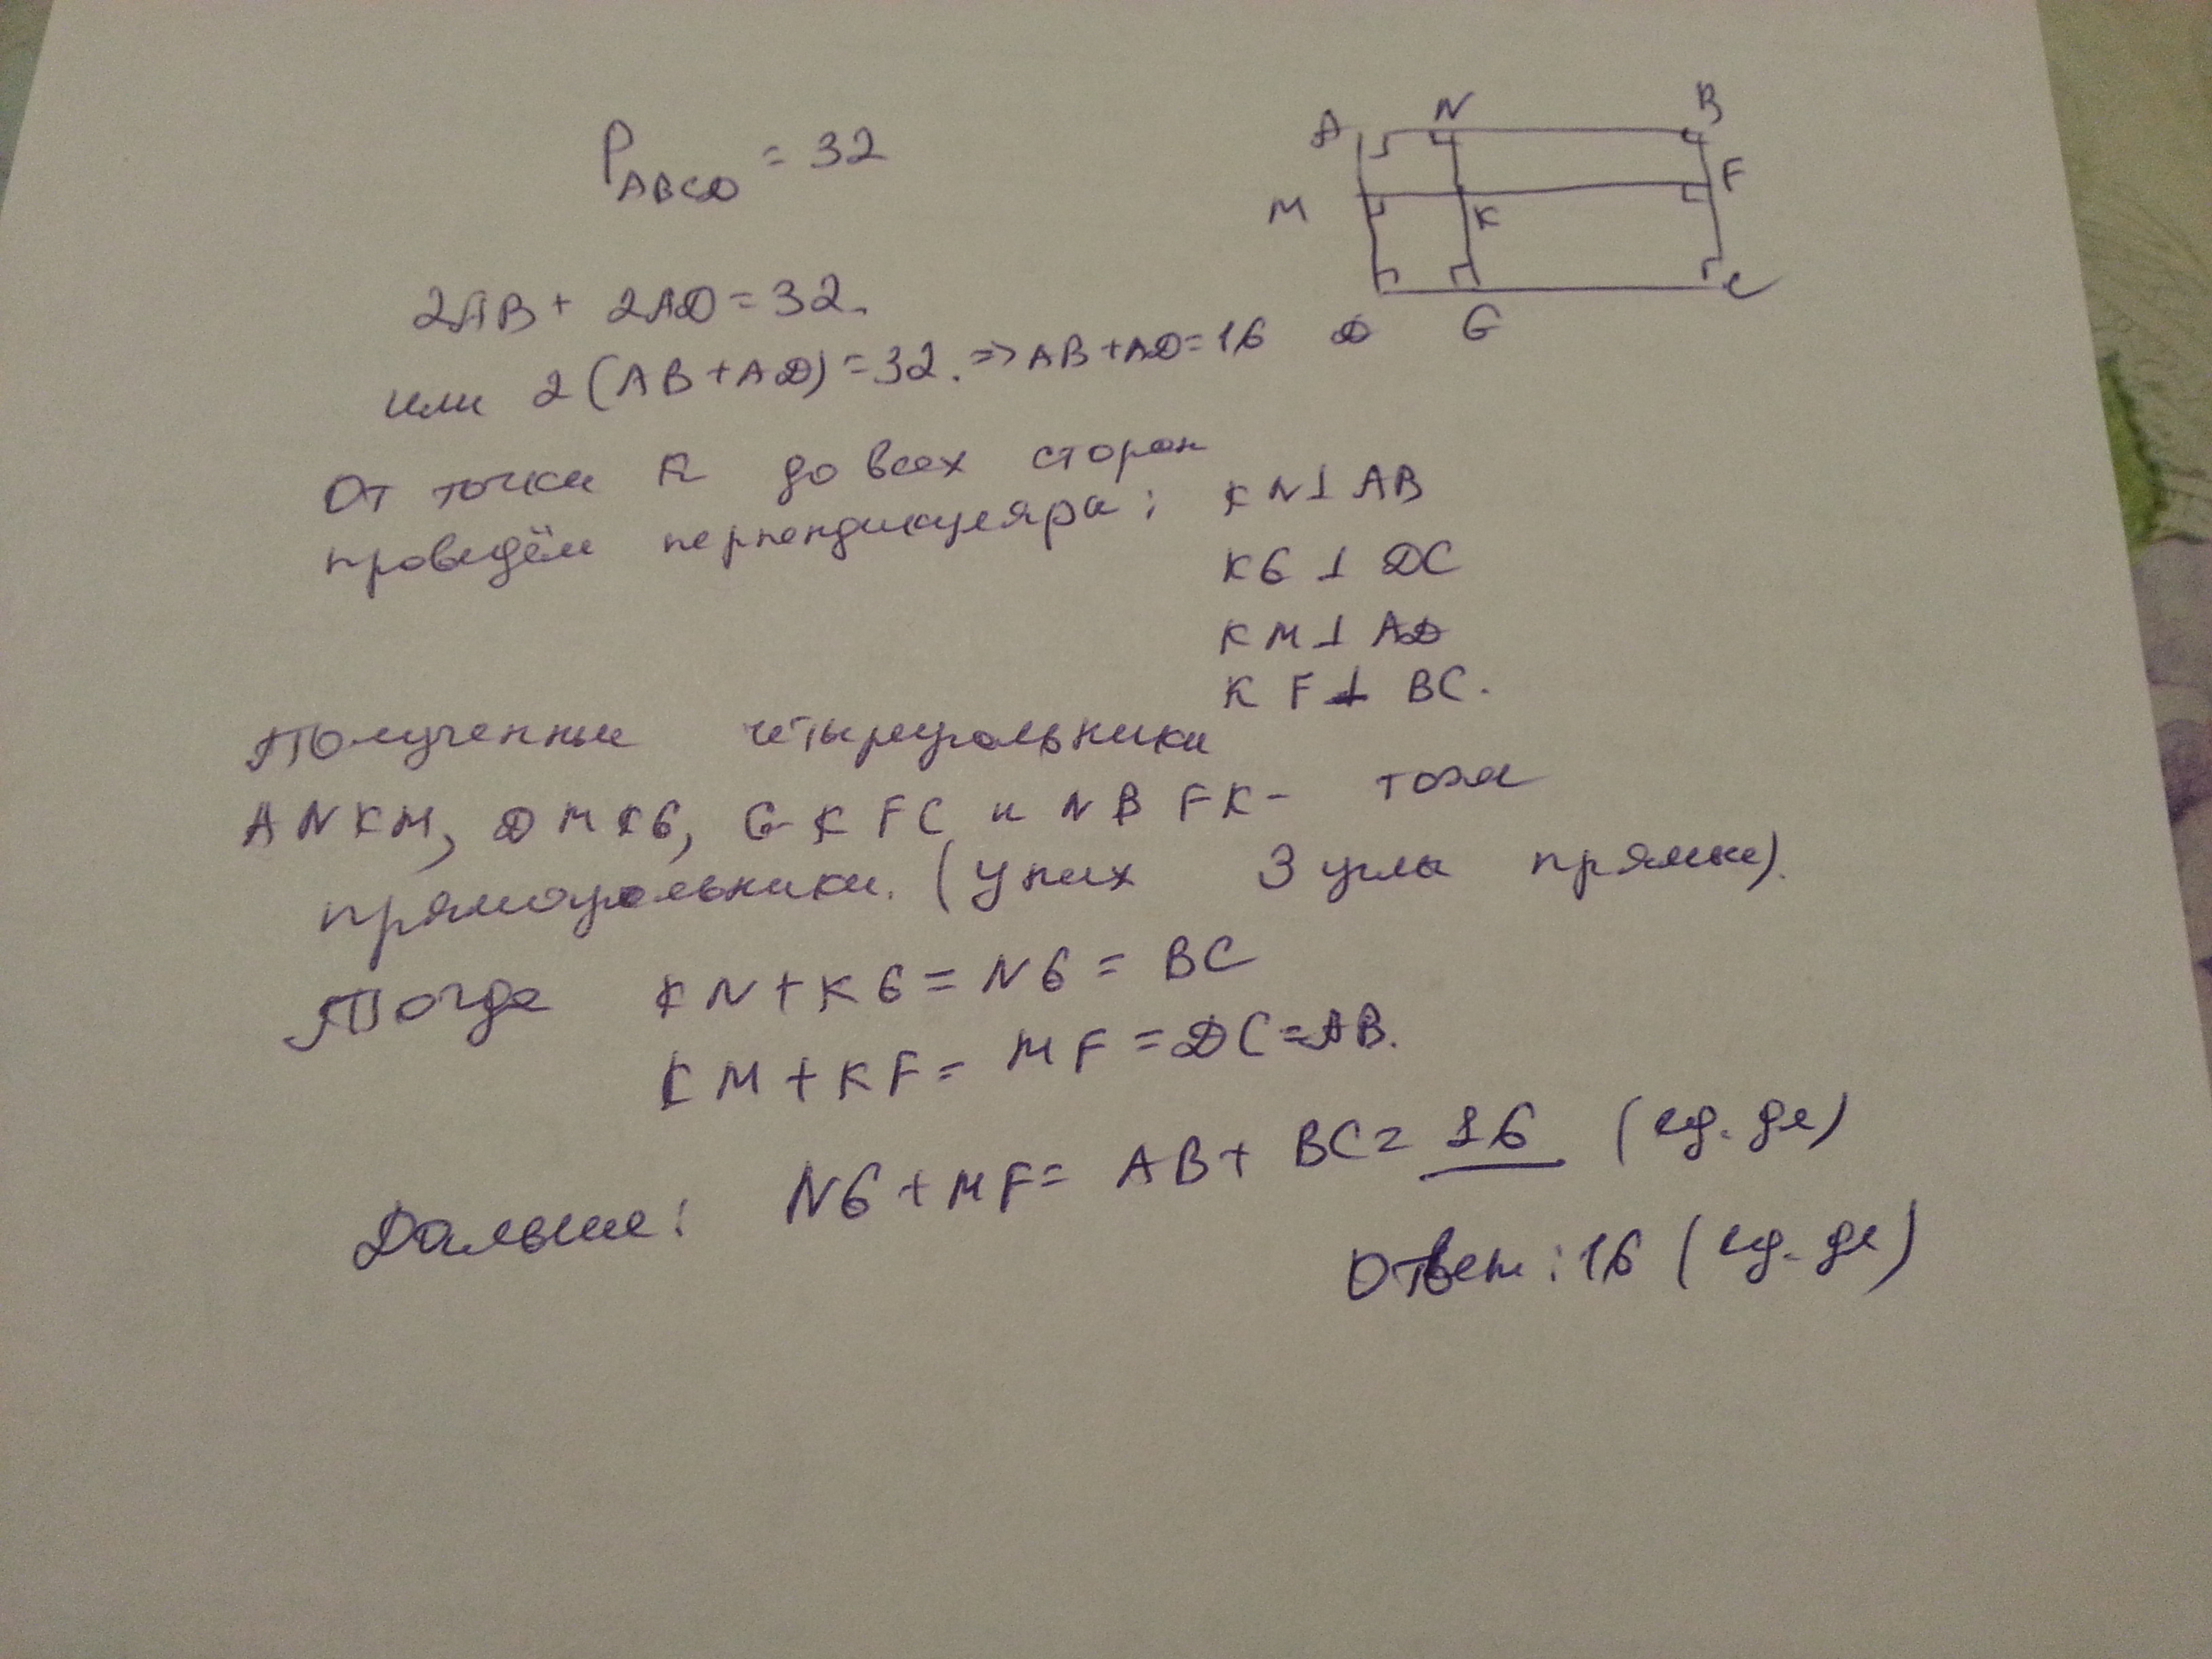 P ABCD = 32
A N B
F
M K
D G C
2AB + 2AD = 32.
или 2 (AB + AD) = 32. => AB + AD = 16
От точки К до всех сторон
проведём перпендикуляра: KN ⊥ AB
KG ⊥ DC
KM ⊥ AD
KF ⊥ BC.
Полученные четырёугольники
ANKM, DMKG, GKFC и NBFK - тоже
прямоугольники. (у них 3 угла прямые).
Тогда KN + KG = NG = BC
KM + KF = MF = DC = AB.
Дальше: NG + MF = AB + BC = 16 (ед. дл)
Ответ: 16 (ед. дл)